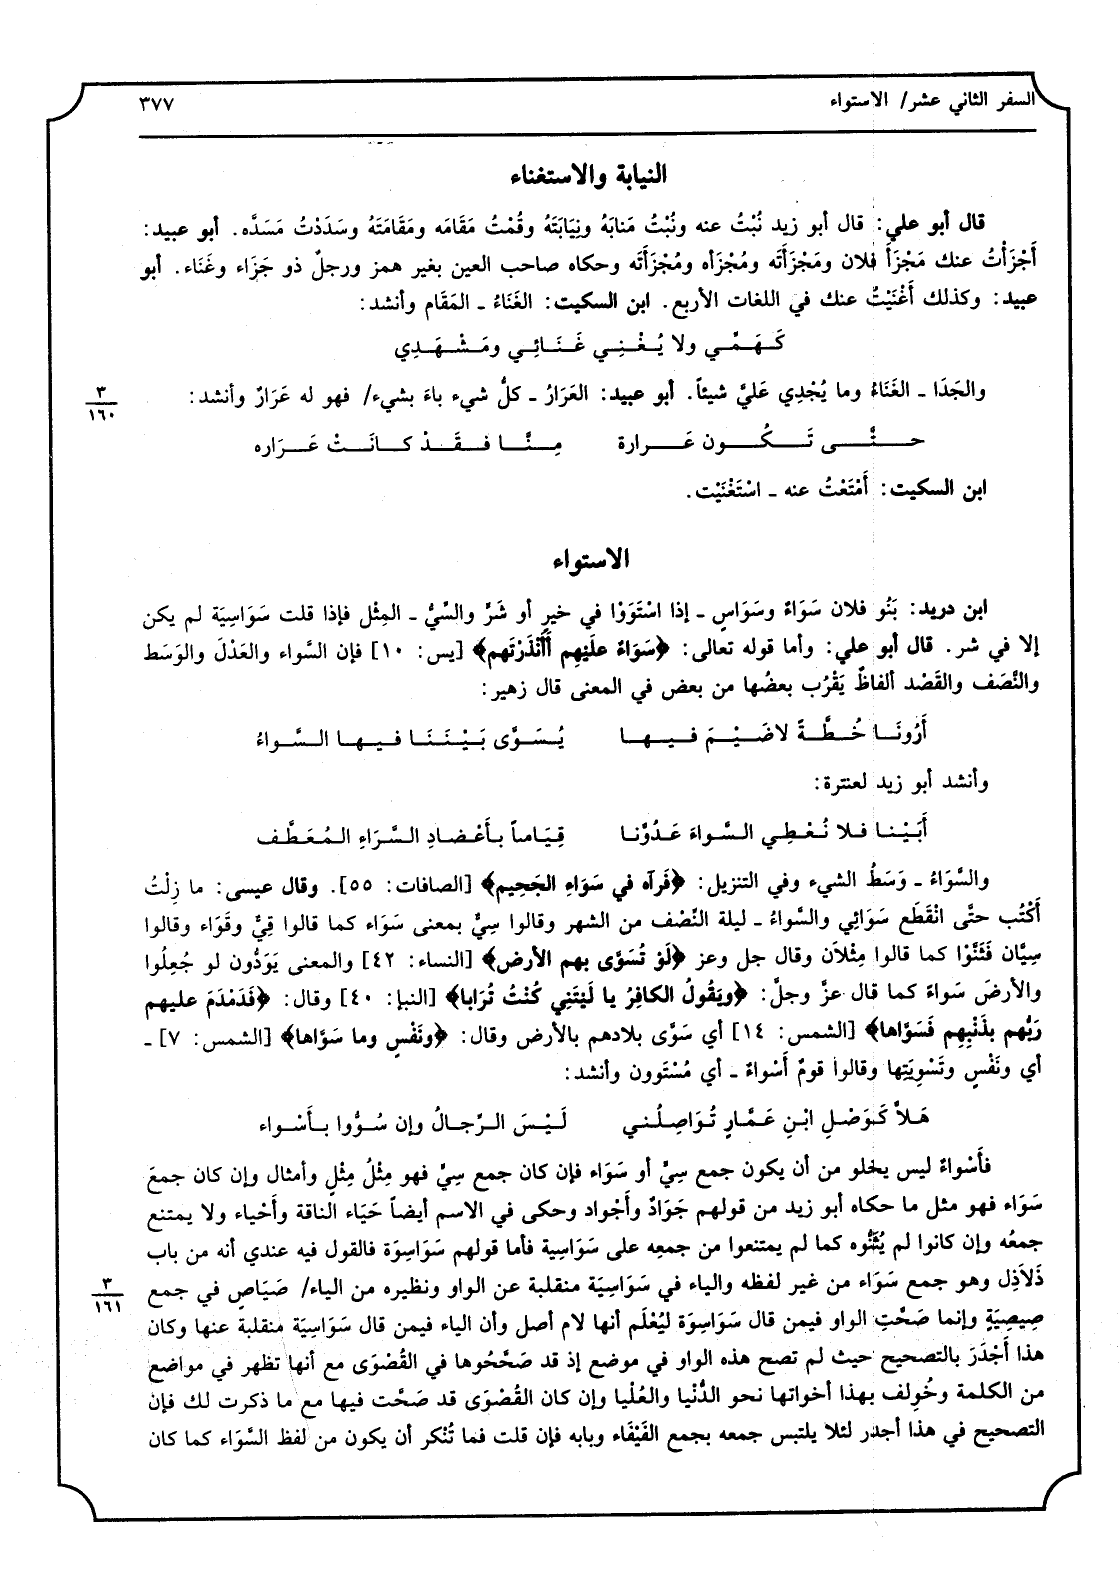 السفر الثاني عشر/ الاستواء
٣٧٧
النيابة والاستغناء
قال أبو علي: قال أبو زيد نُبْتُ عنه ونُبْتُ مَنابَهُ ونِيَابَتَهُ وقُمْتُ مَقَامَه ومَقَامَتَهُ وسَدَدْتُ مَسَدَّه. أبو عبيد:
أَجْزَأْتُ عنك مَجْزَأَ فلان ومَجْزَأَتَه ومُجْزَأه ومُجْزَأَتَه وحكاه صاحب العين بغير همز ورجلٌ ذو جَزَاء وغَنَاء. أبو
عبيد: وكذلك أَغْنَيْتُ عنك في اللغات الأربع. ابن السكيت: الغَنَاءُ ـ المَقَام وأنشد:
كَهَمِّي ولا يُغْنِي غَنَائِي ومَشْهَدِي
والجَدَا ـ الغَنَاءُ وما يُجْدِي عَليَّ شيئاً. أبو عبيد: العَرَارُ ـ كلُّ شيء باءَ بشيء/ فهو له عَرَارٌ وأنشد:
٣
١٦٠
حتَّى تَكُون عَرارة مِنَّا فقَدْ كانَتْ عَرَاره
ابن السكيت: أَمْتَعْتُ عنه ـ اسْتَغْنَيْت.
الاستواء
ابن دريد: بَنُو فلان سَوَاءٌ وسَوَاسٍ ـ إذا اسْتَوَوْا في خيرٍ أو شَرٍّ والسِّيُّ ـ المِثْل فإذا قلت سَوَاسِيَة لم يكن
إلا في شر. قال أبو علي: وأما قوله تعالى: ﴿سَوَاءٌ علَيْهِم أَأَنْذَرْتَهم﴾ [يس: ١٠] فإن السَّواء والعَدْلَ والوَسَط
والنَّصَف والقَصْد ألفاظٌ يَقْرُب بعضُها من بعض في المعنى قال زهير:
أَرُونَا خُطَّةً لاضَيْمَ فيها يُسَوَّى بَيْنَنَا فيها السَّواءُ
وأنشد أبو زيد لعنترة:
أَبَيْنا فلا نُعْطِي السَّواءَ عَدُوَّنا قِيَاماً بأَعْضادِ السَّرَاءِ المُعَطَّف
والسَّوَاءُ ـ وَسَطُ الشيء وفي التنزيل: ﴿فَرآه في سَوَاءِ الجَحِيم﴾ [الصافات: ٥٥]. وقال عيسى: ما زِلْتُ
أَكْتُب حتَّى انْقَطَع سَوَائِي والسَّواءُ ـ ليلة النِّصْف من الشهر وقالوا سِيٌّ بمعنى سَوَاء كما قالوا قِيٌّ وقَوَاء وقالوا
سِيَّان فَثَنَّوْا كما قالوا مِثْلاَن وقال جل وعز ﴿لَوْ تُسَوَّى بهم الأرض﴾ [النساء: ٤٢] والمعنى يَوَدُّون لو جُعِلُوا
والأرضَ سَواءً كما قال عزَّ وجلَّ: ﴿ويَقُولُ الكافِرُ يا لَيْتَنِي كُنْتُ تُرَابا﴾ [النبإ: ٤٠] وقال: ﴿فَدَمْدَمَ عليهم
رَبُّهم بِذَنْبِهِم فَسَوَّاها﴾ [الشمس: ١٤] أي سَوَّى بلادهم بالأرض وقال: ﴿ونَفْسٍ وما سَوَّاها﴾ [الشمس: ٧] ـ
أي ونَفْسٍ وتَسْوِيَتِها وقالوا قومٌ أَسْواءٌ ـ أي مُسْتَوون وأنشد:
هَلاَّ كَوَصْلِ ابْنِ عَمَّارٍ تُوَاصِلُني لَيْسَ الرِّجالُ وإن سُوُّوا بأَسْواء
فأَسْواءٌ ليس يخلو من أن يكون جمع سِيٍّ أو سَوَاء فإن كان جمع سِيٍّ فهو مِثْلُ مِثْلٍ وأمثال وإن كان جمعَ
سَوَاء فهو مثل ما حكاه أبو زيد من قولهم جَوَادٌ وأَجْواد وحكى في الاسم أيضاً حَيَاء الناقة وأَحْياء ولا يمتنع
جمعُه وإن كانوا لم يُثَنُّوه كما لم يمتنعوا من جمعِه على سَوَاسِية فأما قولهم سَوَاسِوَة فالقول فيه عندي أنه من باب
ذَلاَذِل وهو جمع سَوَاء من غير لفظه والياء في سَوَاسِيَة منقلبة عن الواو ونظيره من الياء/ صَيَاصٍ في جمع
٣
١٦١
صِيصِيَةٍ وإنما صَحَّتِ الواو فيمن قال سَوَاسِوَة لِيُعْلَم أنها لام أصل وأن الياء فيمن قال سَوَاسِيَة منقلبة عنها وكان
هذا أَجْدَرَ بالتصحيح حيث لم تصح هذه الواو في موضع إذ قد صَحَّحُوها في القُصْوَى مع أنها تظهر في مواضع
من الكلمة وخُولِف بهذا أخواتها نحو الدُّنْيا والعُلْيا وإن كان القُصْوَى قد صَحَّت فيها مع ما ذكرت لك فإن
التصحيح في هذا أجدر لئلا يلتبس جمعه بجمع الفَيْفَاء وبابه فإن قلت فما تُنْكر أن يكون من لفظ السَّوَاء كما كان